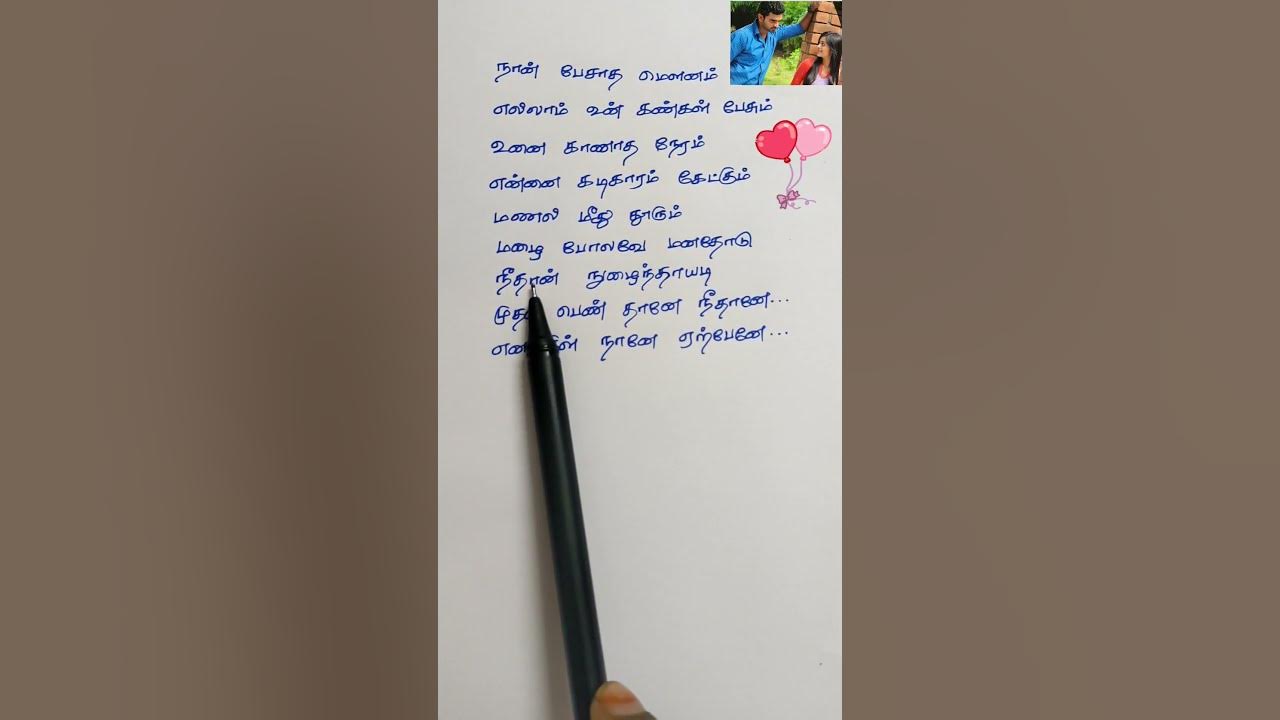 நான் பேசாத மௌனம்
எலிலாம் உன் கண்கள் பேசும்
உனை காணாத நேரம்
என்னை கடிகாரம் கேட்கும்
மணலி மீது தூறும்
மழை போலவே மனதோடு
நீதான் நுழைந்தாயடி
பெண் தானே நீதானே...
நானே ஏற்பேனே...